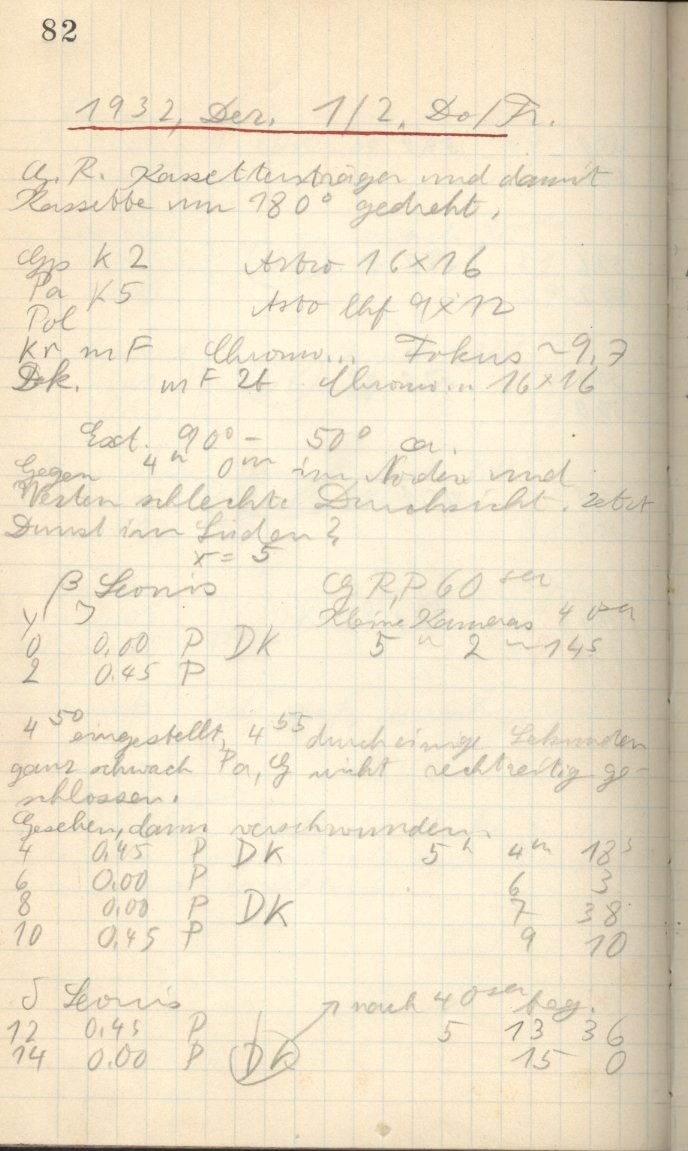 82
1932, Dez. 1/2, Do/Fr.
G. R. Kassettenträger und damit
Kassette um 180° gedreht.
K 2 Astro 16×16
Pa K5 Astro 9×12
Pol
Kr m F Chromo... Fokus ~9,7
DK. m F 26 Chromo... 16×16
Ext. 90° - 50° ca.
Gegen 4ʰ 0ᵐ im Norden und
Westen schlechte Durchsicht. Jetzt
Dunst im Süden?
x = 5
β Leonis G R, P 60 sec
y Kleine Kameras 40 sec
0 0.00 P DK 5ʰ 2ᵐ 14s
2 0.45 P
4⁵⁰ eingestellt, 4⁵⁵ durch einige Sekunden
ganz schwach Pa, G nicht rechtzeitig ge-
schlossen.
Gesehen, dann verschwunden.
4 0.45 P DK 5ʰ 4ᵐ 18ˢ
6 0.00 P 6 3
8 0.00 P DK 7 38
10 0.45 P 9 10
δ Leonis nach 40sec beg.
12 0.45 P 5 13 36
14 0.00 P DK 15 0